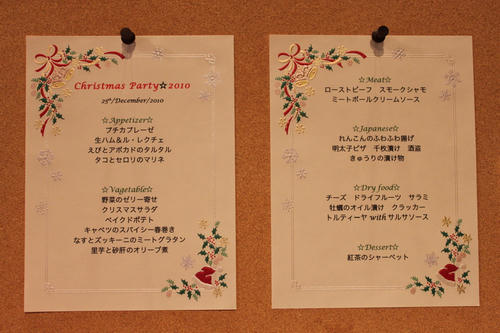 Christmas Party☆2010
25th/December/2010
☆Appetizer☆
プチカプレーゼ
生ハム&ル・レクチェ
えびとアボカドのタルタル
タコとセロリのマリネ
☆Vagetable☆
野菜のゼリー寄せ
クリスマスサラダ
ベイクドポテト
キャベツのスパイシー春巻き
なすとズッキーニのミートグラタン
里芋と砂肝のオリーブ煮
☆Meat☆
ローストビーフ　スモークシャモ
ミートボールクリームソース
☆Japanese☆
れんこんのふわふわ揚げ
明太子ピザ　千枚漬け　酒盗
きゅうりの漬け物
☆Dry food☆
チーズ　ドライフルーツ　サラミ
牡蠣のオイル漬け　クラッカー
トルティーヤ with サルサソース
☆Dessert☆
紅茶のシャーベット